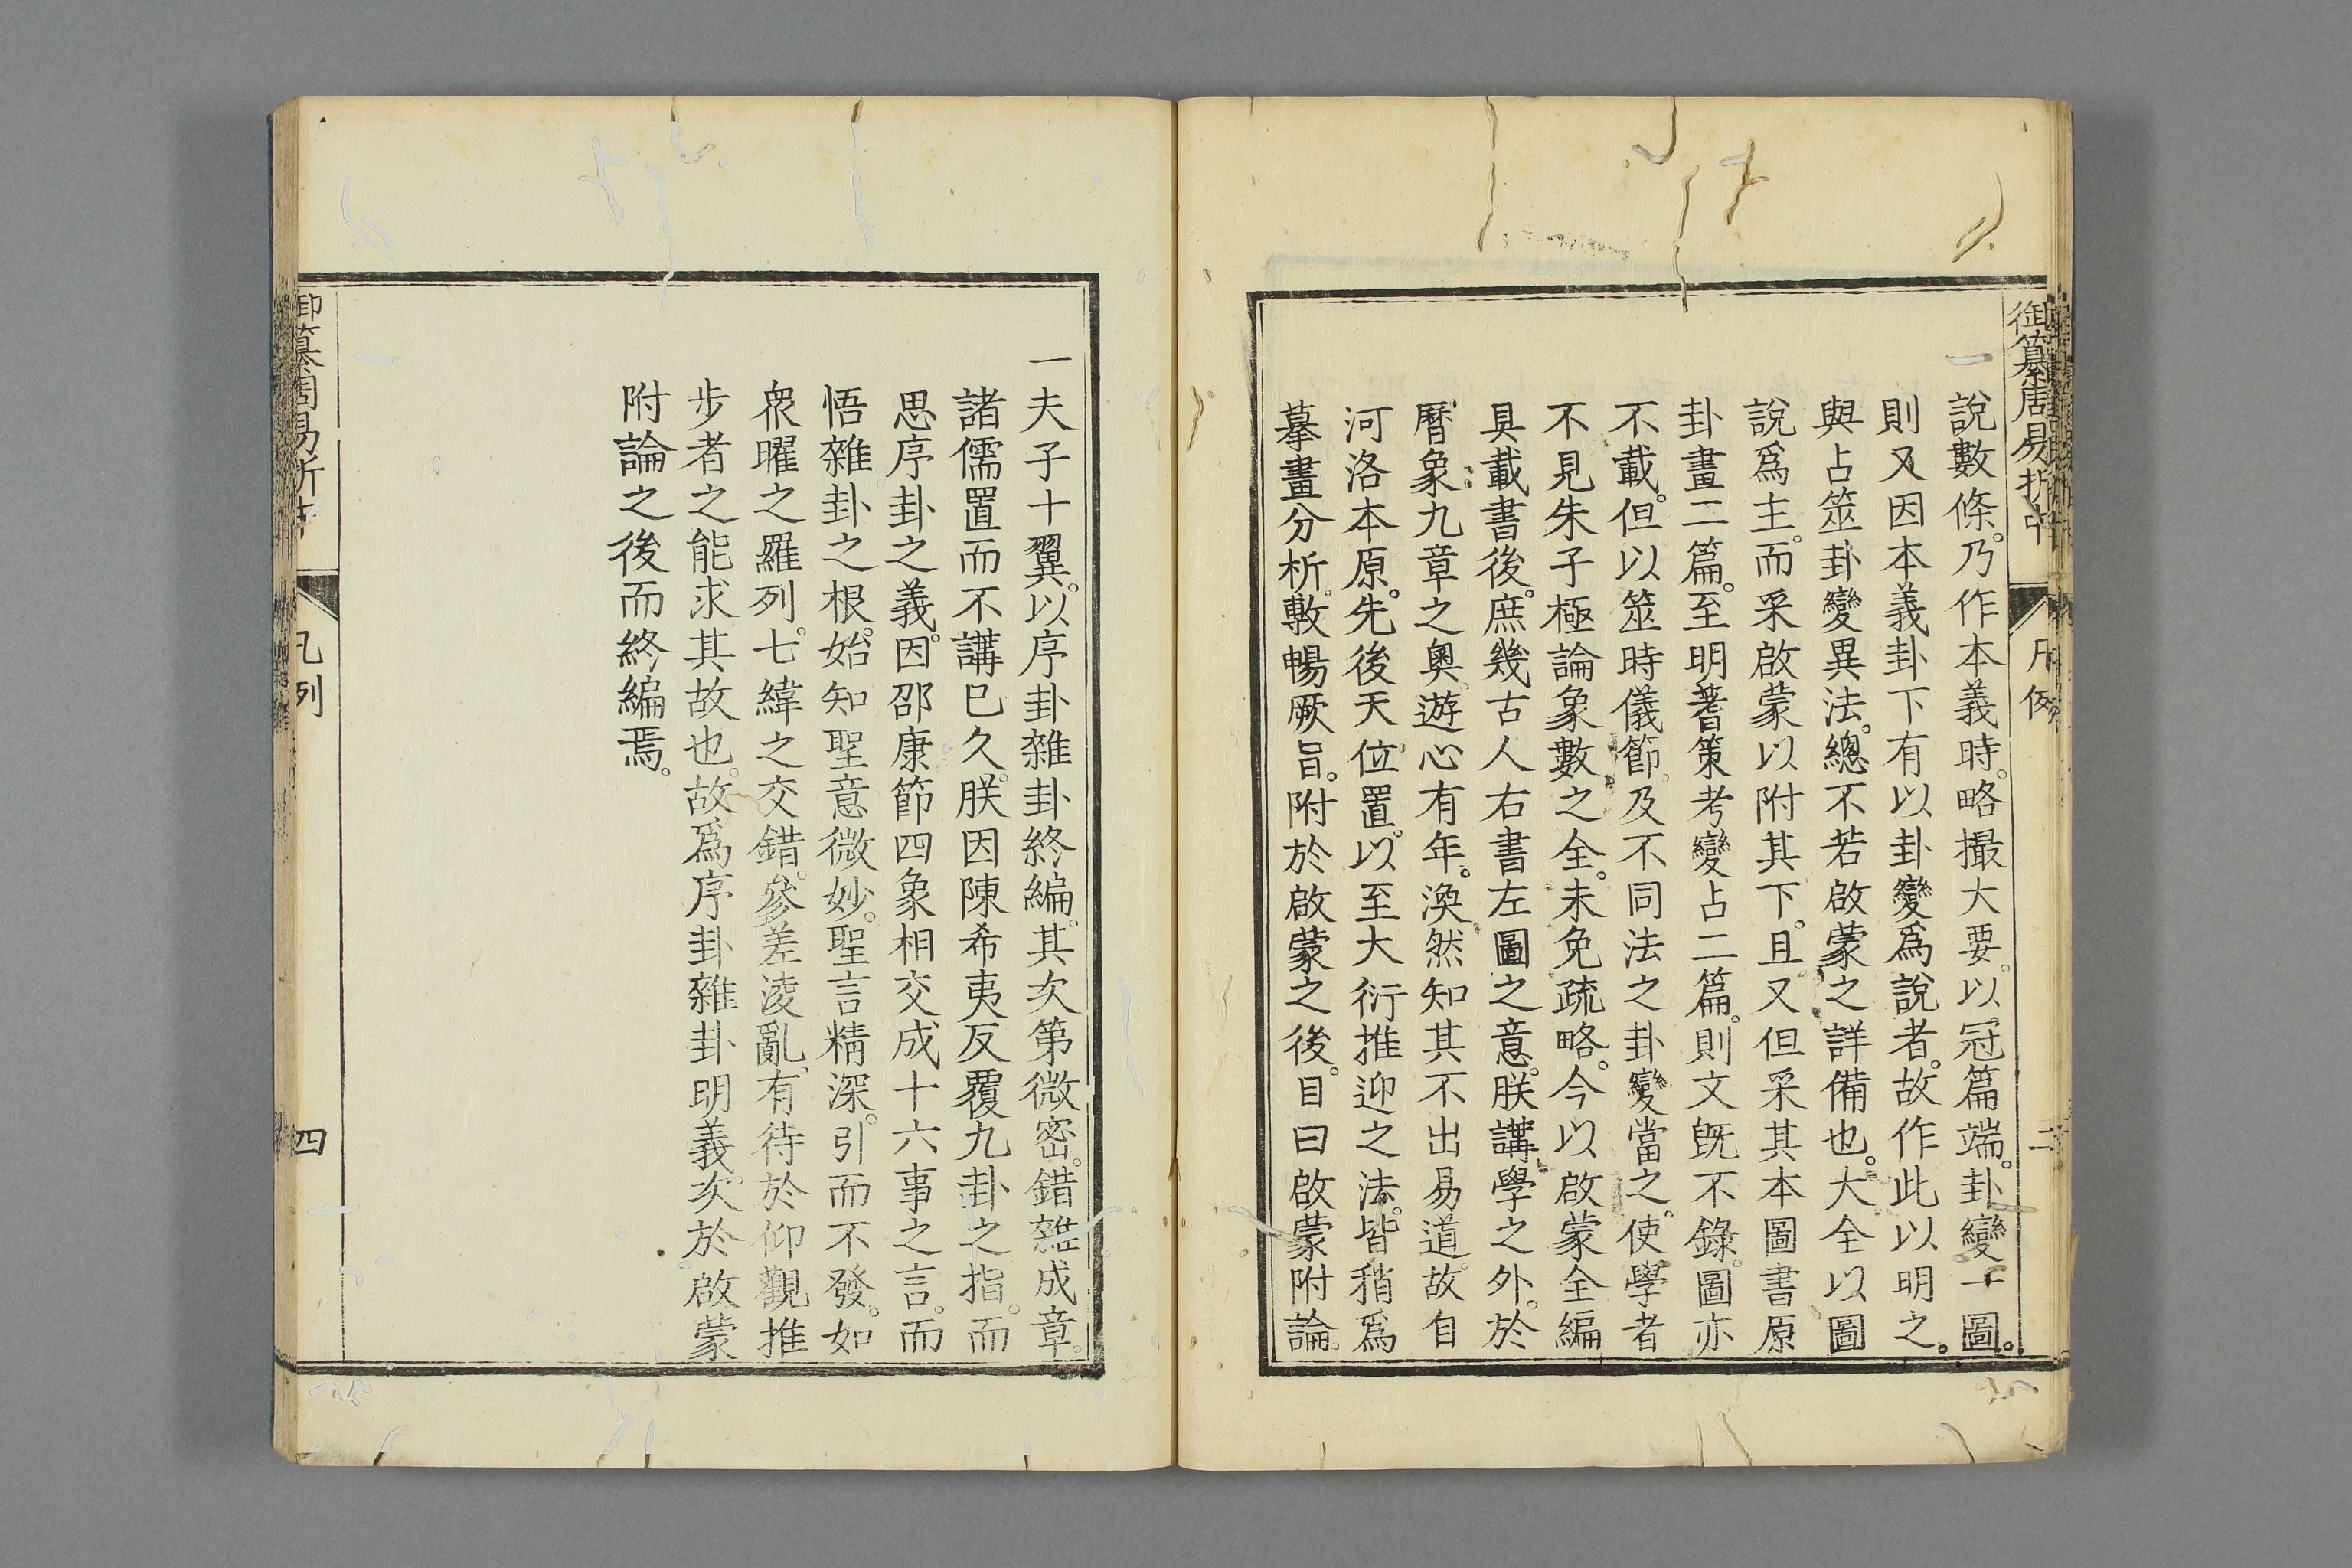 御纂周易折中
凡例
一說數條。乃作本義時。略撮大要。以冠篇端。卦變一圖。
則又因本義卦下有以卦變爲說者。故作此以明之。
與占筮卦變異法。總不若啟蒙之詳備也。大全以圖
說爲主。而采啟蒙以附其下。且又但采其本圖書原
卦畫二篇。至明蓍策考變占二篇。則文旣不錄。圖亦
不載。但以筮時儀節。及不同法之卦變當之。使學者
不見朱子極論象數之全。未免疏略。今以啟蒙全編
具載書後。庶幾古人右書左圖之意。朕講學之外。於
曆象九章之奧。遊心有年。渙然知其不出易道。故自
河洛本原。先後天位置。以至大衍推迎之法。皆稍爲
摹畫分析。敷暢厥旨。附於啟蒙之後。目曰啟蒙附論。
一夫子十翼。以序卦雜卦終編。其次第微密。錯雜成章。
諸儒置而不講已久。朕因陳希夷反覆九卦之指。而
思序卦之義。因邵康節四象相交成十六事之言。而
悟雜卦之根。始知聖意微妙。聖言精深。引而不發。如
衆曜之羅列。七緯之交錯。參差淩亂。有待於仰觀推
步者之能求其故也。故爲序卦雜卦明義。次於啟蒙
附論之後而終編焉。
四